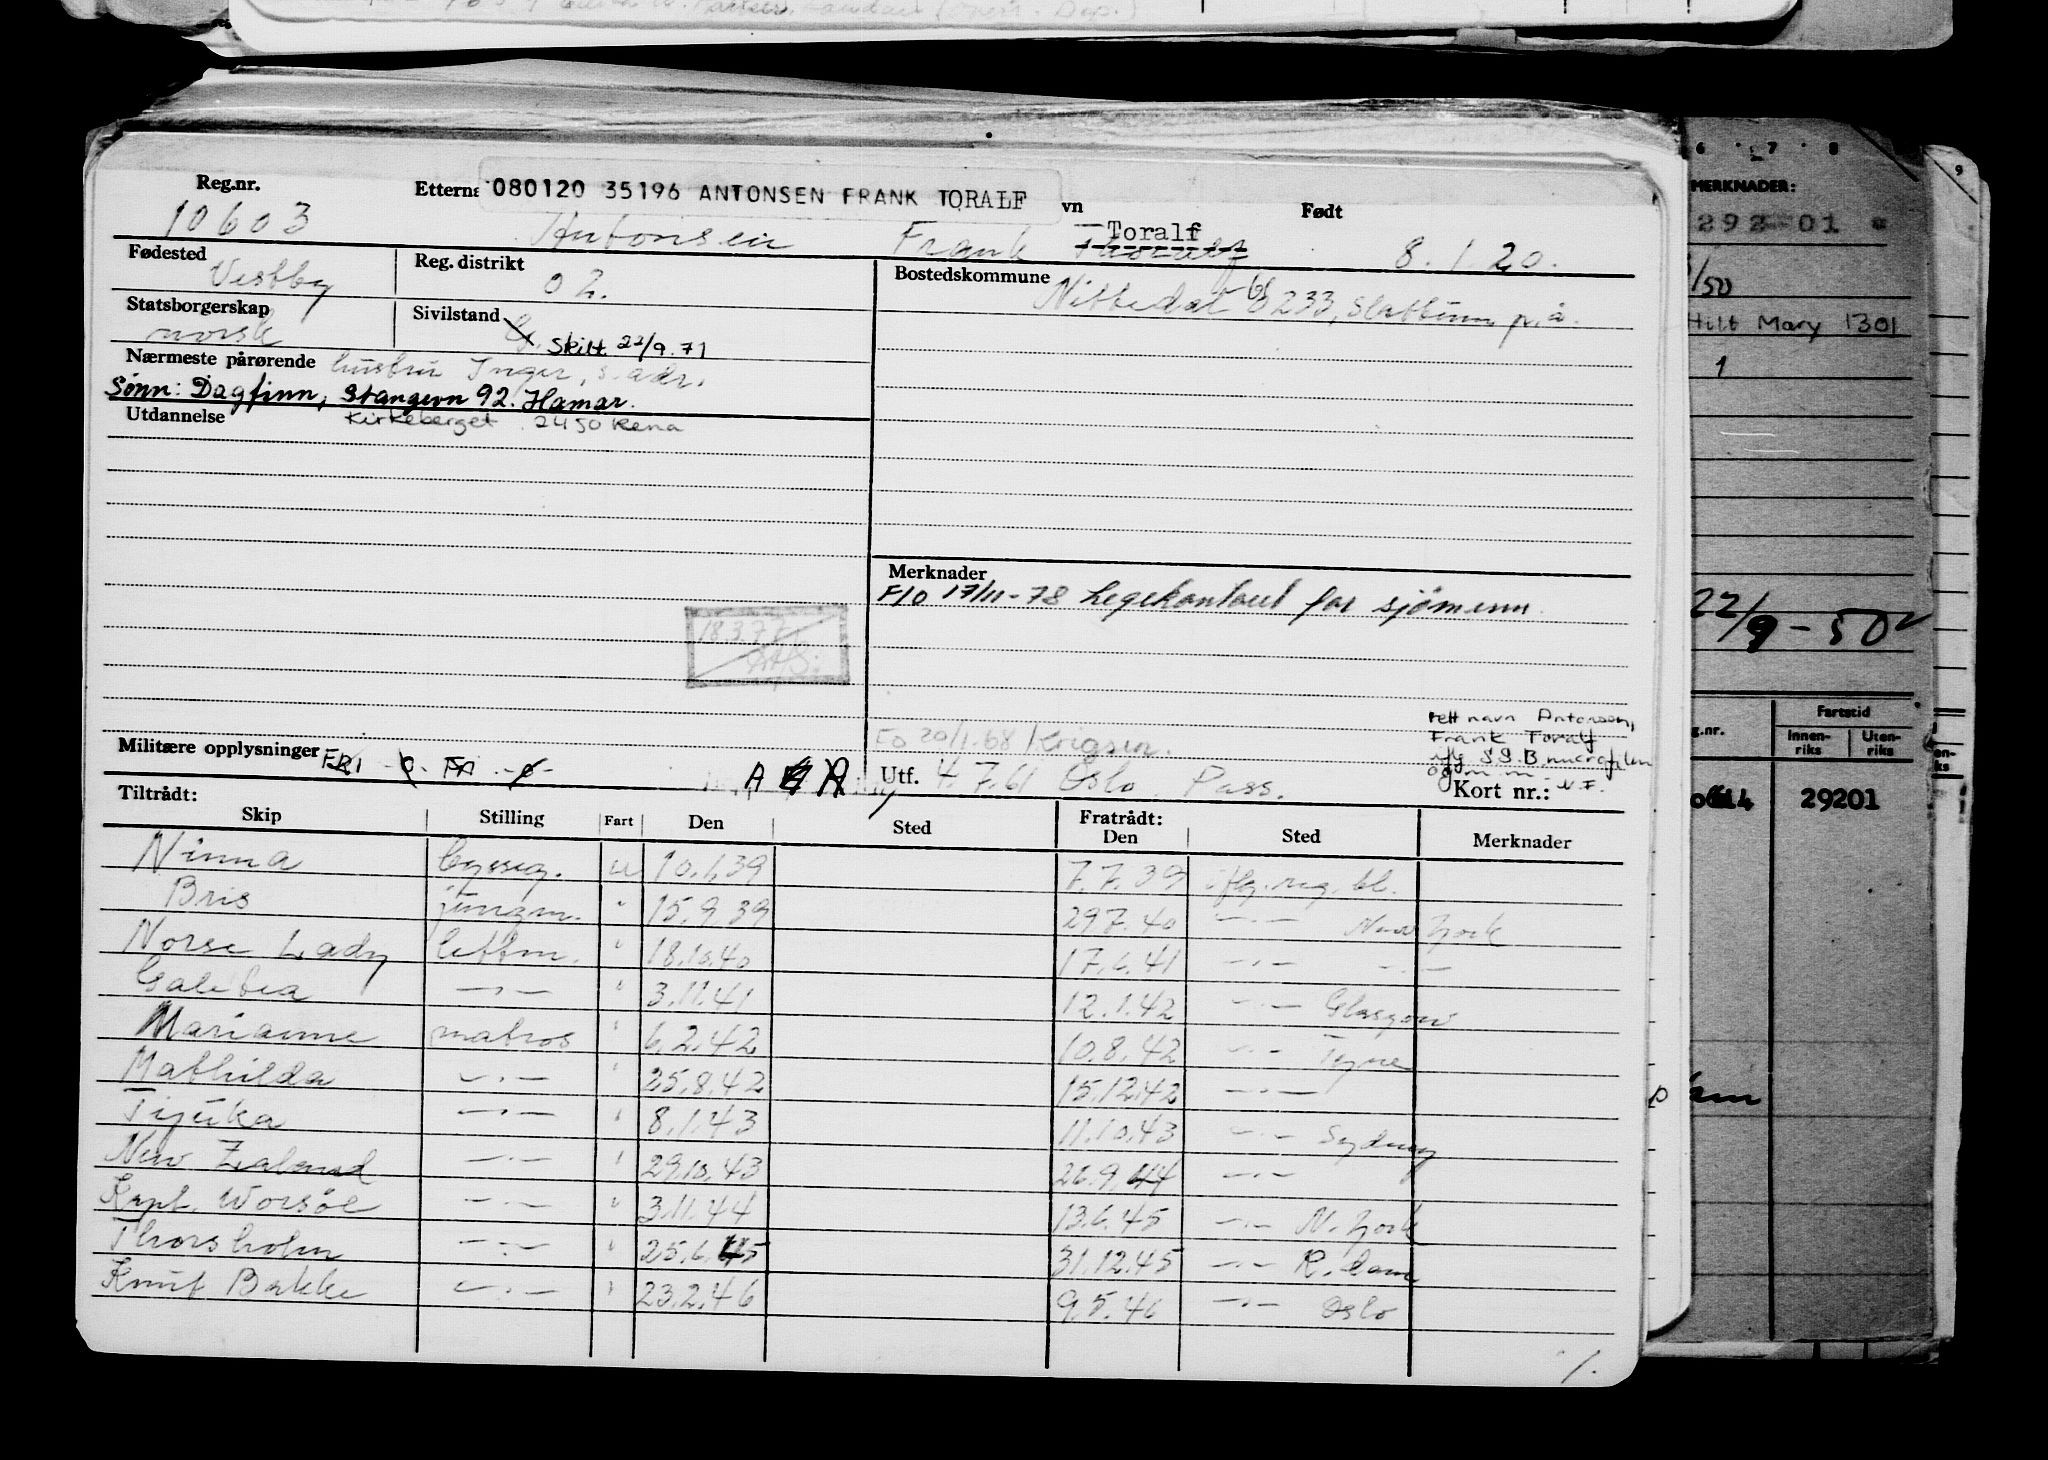 Reg.nr. Etterna 080120 35196 ANTONSEN FRANK TORALF vn Født
10603 Antonsen Frank Toralf 8.1.20.
Fødested Vestby Reg. distrikt 02. Bostedskommune Nittedal 233, Slattum p.å.
Statsborgerskap norsk Sivilstand G. Skilt 22/9.71
Nærmeste pårørende hustru Inger, s. adr.
Sønn: Dagfinn, Stangevn 92. Hamar.
Utdannelse Kirkeberget 2450 Rena
Merknader
F/O 17/11-78 Legekontoret for sjömenn.
18.3.77
rett navn Antonsen,
Frank Toralf
ifg S.S.B mikrofilm
og m.m. N.F.
FO 20/1.68 Krigsm.
Militære opplysninger FRI
Utf. 4.7.61 Oslo. Pass. Kort nr.:
Tiltrådt: Fratrådt:
Skip Stilling Fart Den Sted Den Sted Merknader
Ninna byssg. u 10.1.39 7.7.39 ifg. reg. bl.
Bris jungm. " 15.9.39 29.7.40 —.— New York
Norse Lady lettm. " 18.10.40 17.6.41 —.— —.—
Galatea —.— " 3.11.41 12.1.42 —.— Glasgow
Marianne matros " 6.2.42 10.8.42 —.— Tyne
Mathilda —.— " 25.8.42 15.12.42 —.—
Tijuka —.— " 8.1.43 11.10.43 —.— Sydney
New Zealand —.— " 29.10.43 26.9.44 —.—
Kapt. Worsöe —.— " 3.11.44 13.6.45 —.— N. York
Thorsholm —.— " 25.6.45 31.12.45 —.— R.dam
Knut Bakke —.— " 23.2.46 9.5.46 —.— Oslo
/.
6 7 8
9
MERKNADER:
292-01
/50
Hilt Mary 1301
1
22/9-50
g.nr. Fartstid
Innen-
riks Uten-
riks
29201